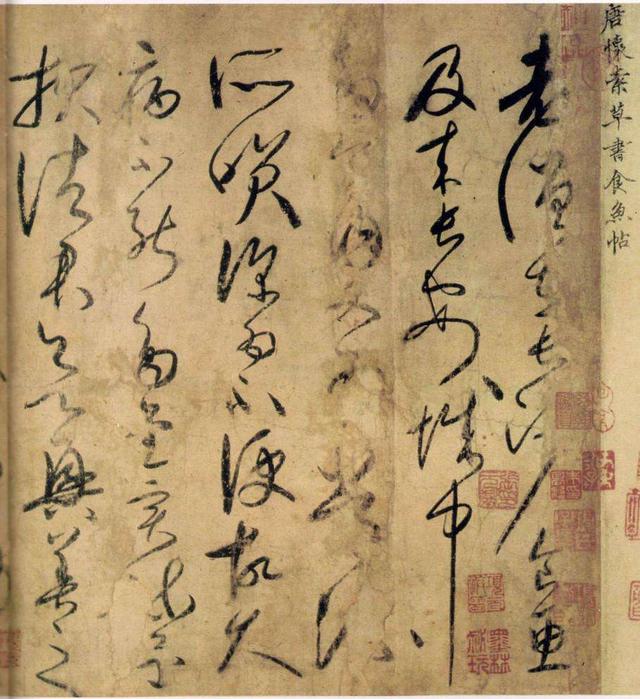 唐懷素草書食魚帖
老僧在長沙食魚
及來長安城中
多食肉又為常流
所笑深為不便故久
病不能多書實疏還
報諸君欲興善之